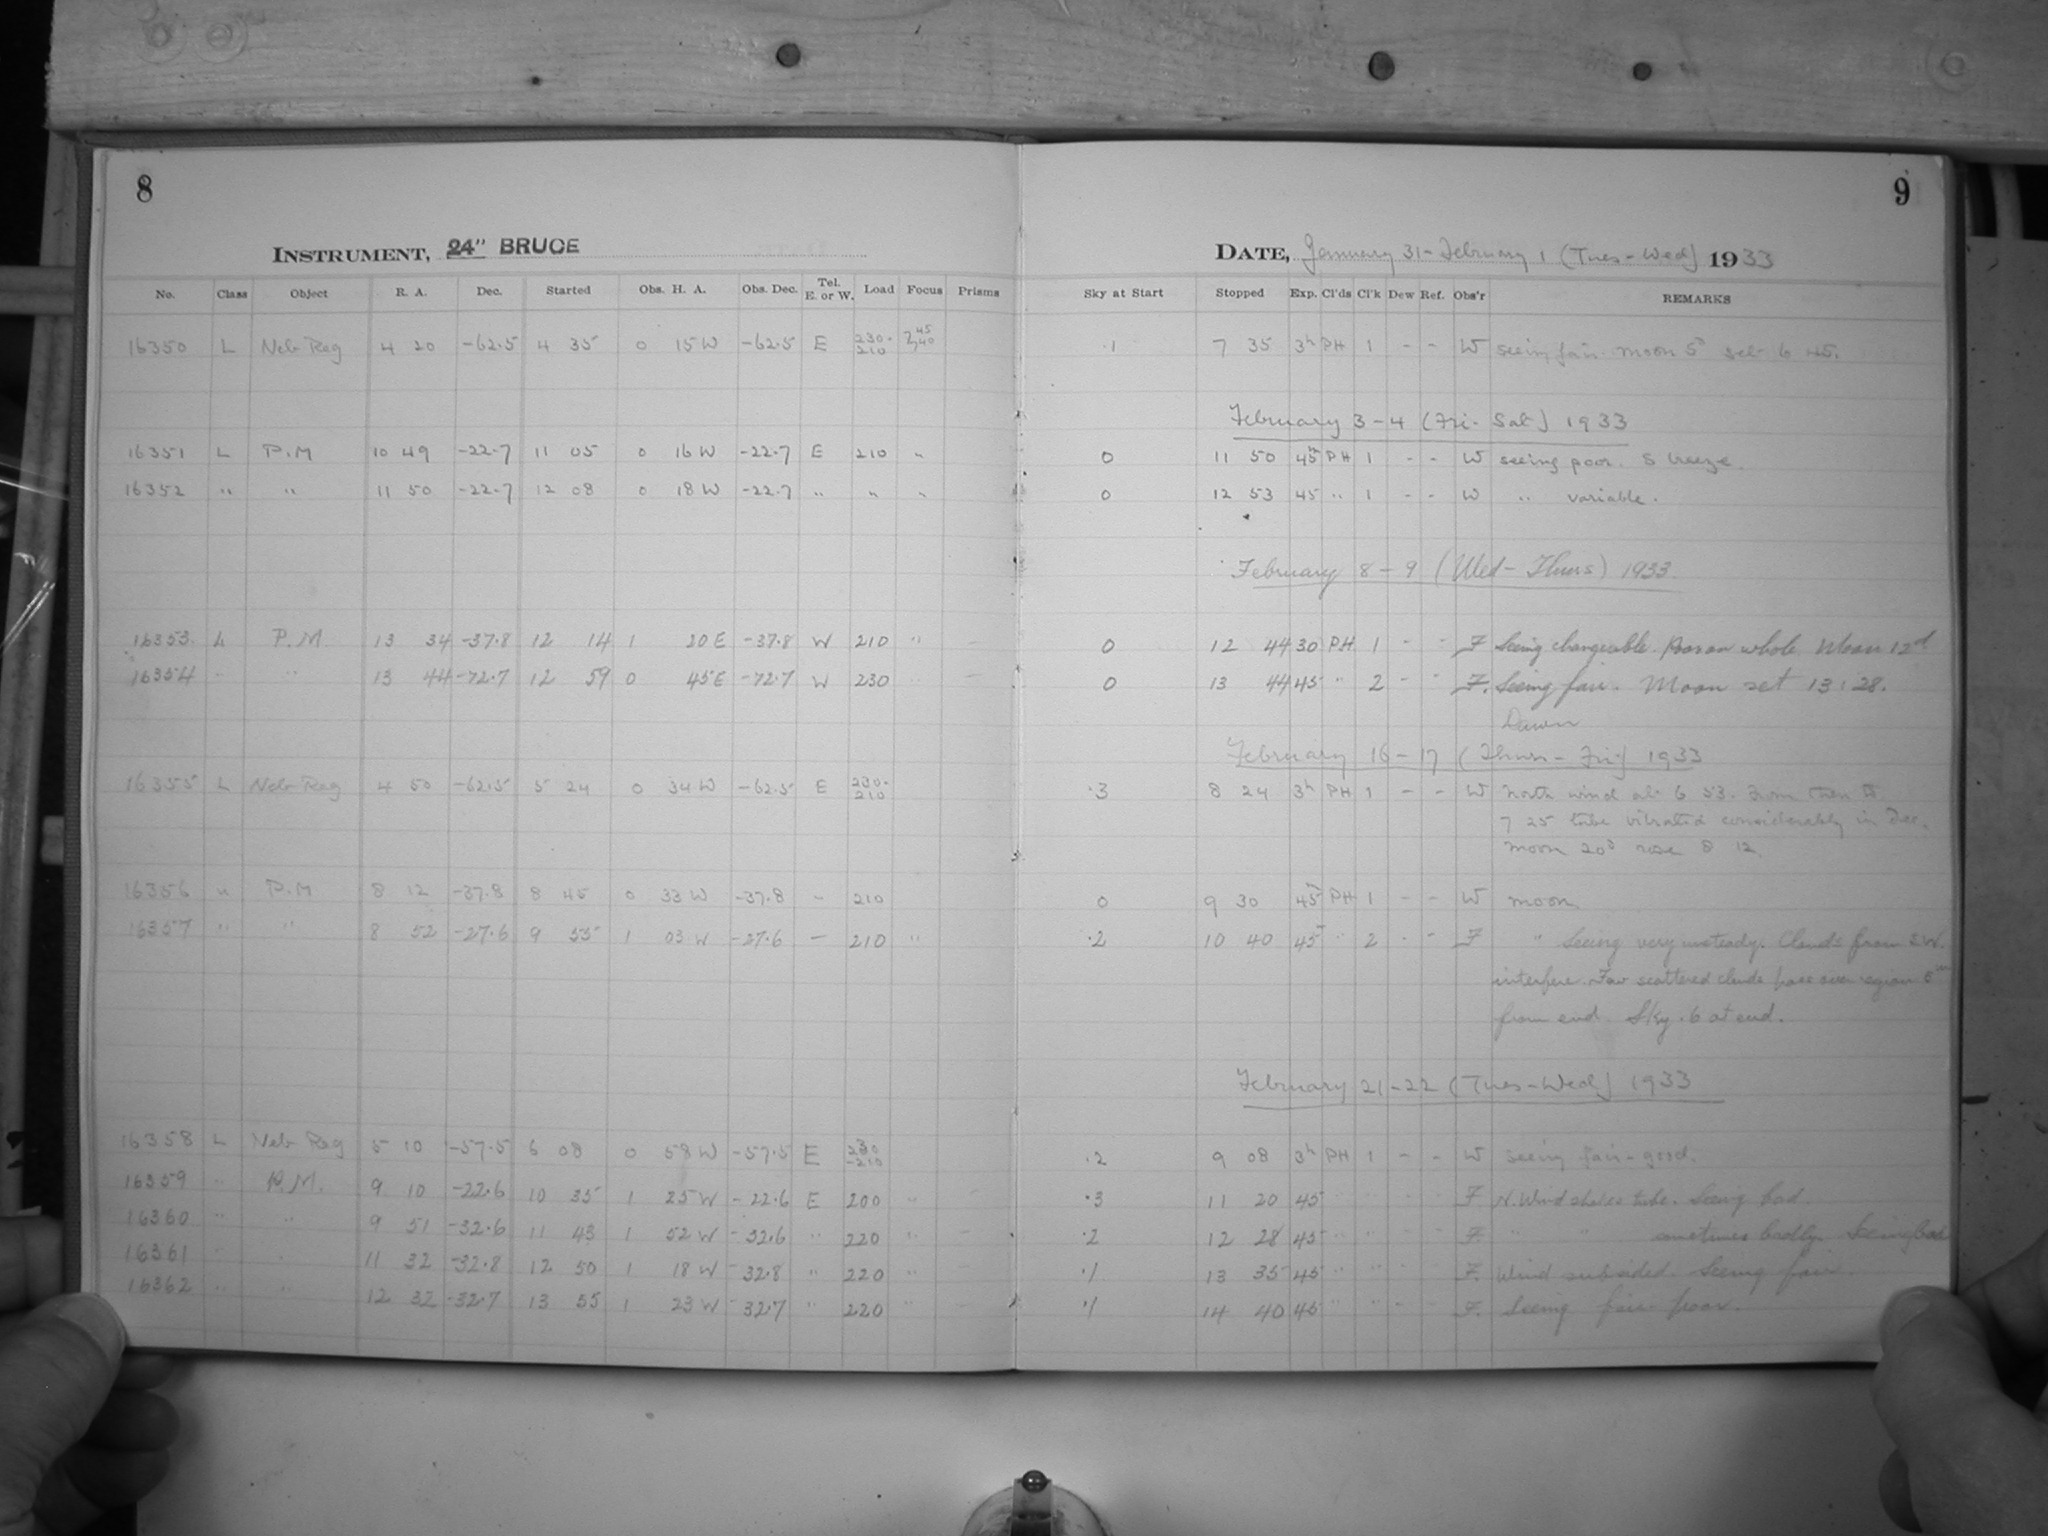 8
INSTRUMENT, 24" BRUCE
No. Class Object R. A. Dec. Started Obs. H. A. Obs. Dec. Tel. E. or W. Load Focus Prisms
16350 L Neb Reg 4 20 -62.5 4 35 0 15 W -62.5 E 230-210 2.45 2.40
16351 L P.M 10 49 -22.7 11 05 0 16 W -22.7 E 210 "
16352 " " 11 50 -22.7 12 08 0 18 W -22.7 " " "
16353 L P.M. 13 34 -37.8 12 14 1 20 E -37.8 W 210 " -
16354 " " 13 44 -72.7 12 59 0 45 E -72.7 W 230 -
16355 L Neb Reg 4 50 -62.5 5 24 0 34 W -62.5 E 230-210
16356 " P.M 8 12 -37.8 8 45 0 33 W -37.8 - 210
16357 " " 8 52 -27.6 9 55 1 03 W -27.6 - 210 "
16358 L Neb Reg 5 10 -57.5 6 08 0 58 W -57.5 E 230-210
16359 " P.M. 9 10 -22.6 10 35 1 25 W -22.6 E 200 " -
16360 " " 9 51 -32.6 11 43 1 52 W -32.6 " 220 " -
16361 " " 11 32 -32.8 12 50 1 18 W -32.8 " 220 " -
16362 " " 12 32 -32.7 13 55 1 23 W -32.7 " 220 " -
9
DATE, January 31 - February 1 (Tues - Wed) 1933
Sky at Start Stopped Exp. Cl'ds Cl'k Dew Ref. Obs'r REMARKS
.1 7 35 3h PH 1 - - W seeing fair. moon 5d set 6 45.
February 3-4 (Fri - Sat) 1933
0 11 50 45m PH 1 - - W seeing poor. S breeze.
0 12 53 45 " 1 - - W " variable.
February 8-9 (Wed - Thurs) 1933
0 12 44 30 PH 1 - - F Seeing changeable. Poor on whole. Moon 12d
0 13 44 45 " 2 - - F. Seeing fair. Moon set 13:28.
Dawn
February 16-17 (Thurs - Fri) 1933
.3 8 24 3h PH 1 - - W North wind at 6 53. From then to
7 25 tube vibrated considerably in Dec.
moon 20d rose 8 12.
0 9 30 45m PH 1 - - W moon.
.2 10 40 45 " 2 - - F " Seeing very unsteady. Clouds from S.W.
interfere. Few scattered clouds pass over region 5m
from end. Sky .6 at end.
February 21-22 (Tues - Wed) 1933
.2 9 08 3h PH 1 - - W seeing fair - good.
.3 11 20 45 F N. Wind shakes tube. Seeing bad.
.2 12 28 45 " " - - F. " " sometimes badly. Seeing bad
.1 13 35 45 " " - - F. Wind subsided. Seeing fair.
.1 14 40 45 " " - - F. Seeing fair-poor.